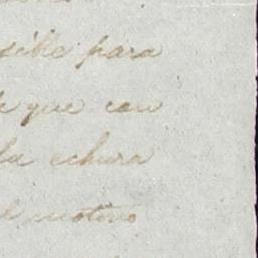 sible para
que con
la echura
el motivo